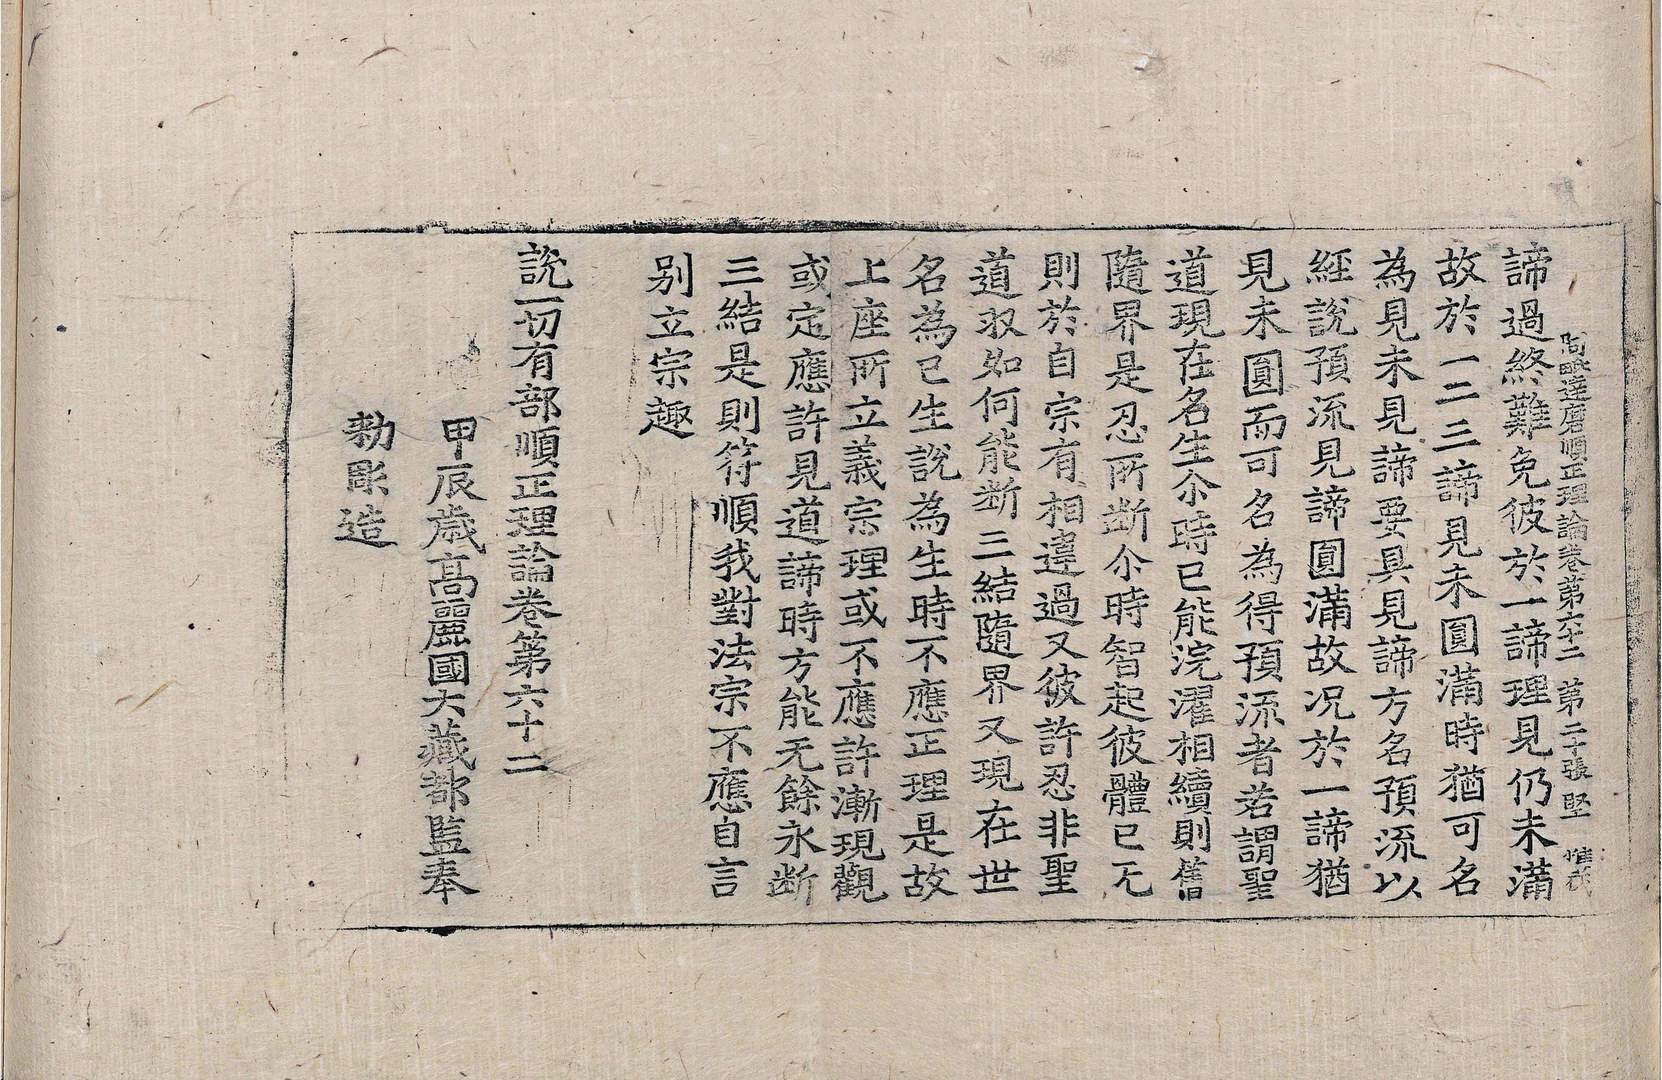 阿毗達磨順正理論卷第六十二 第二十張 堅
諦過終難免彼於一諦理見仍未滿
故於一二三諦見未圓滿時猶可名
為見未見諦要具見諦方名預流以
經說預流見諦圓滿故况於一諦猶
見未圓而可名為得預流者若謂聖
道現在名生尒時已能浣濯相續則舊
隨界是忍所斷尒時智起彼體已无
則於自宗有相違過又彼許忍非聖
道収如何能斷三結隨界又現在世
名為已生說為生時不應正理是故
上座所立義宗理或不應許漸現觀
或定應許見道諦時方能无餘永斷
三結是則符順我對法宗不應自言
别立宗趣
說一切有部順正理論卷第六十二
甲辰歲髙麗國大藏都監奉
勑彫造